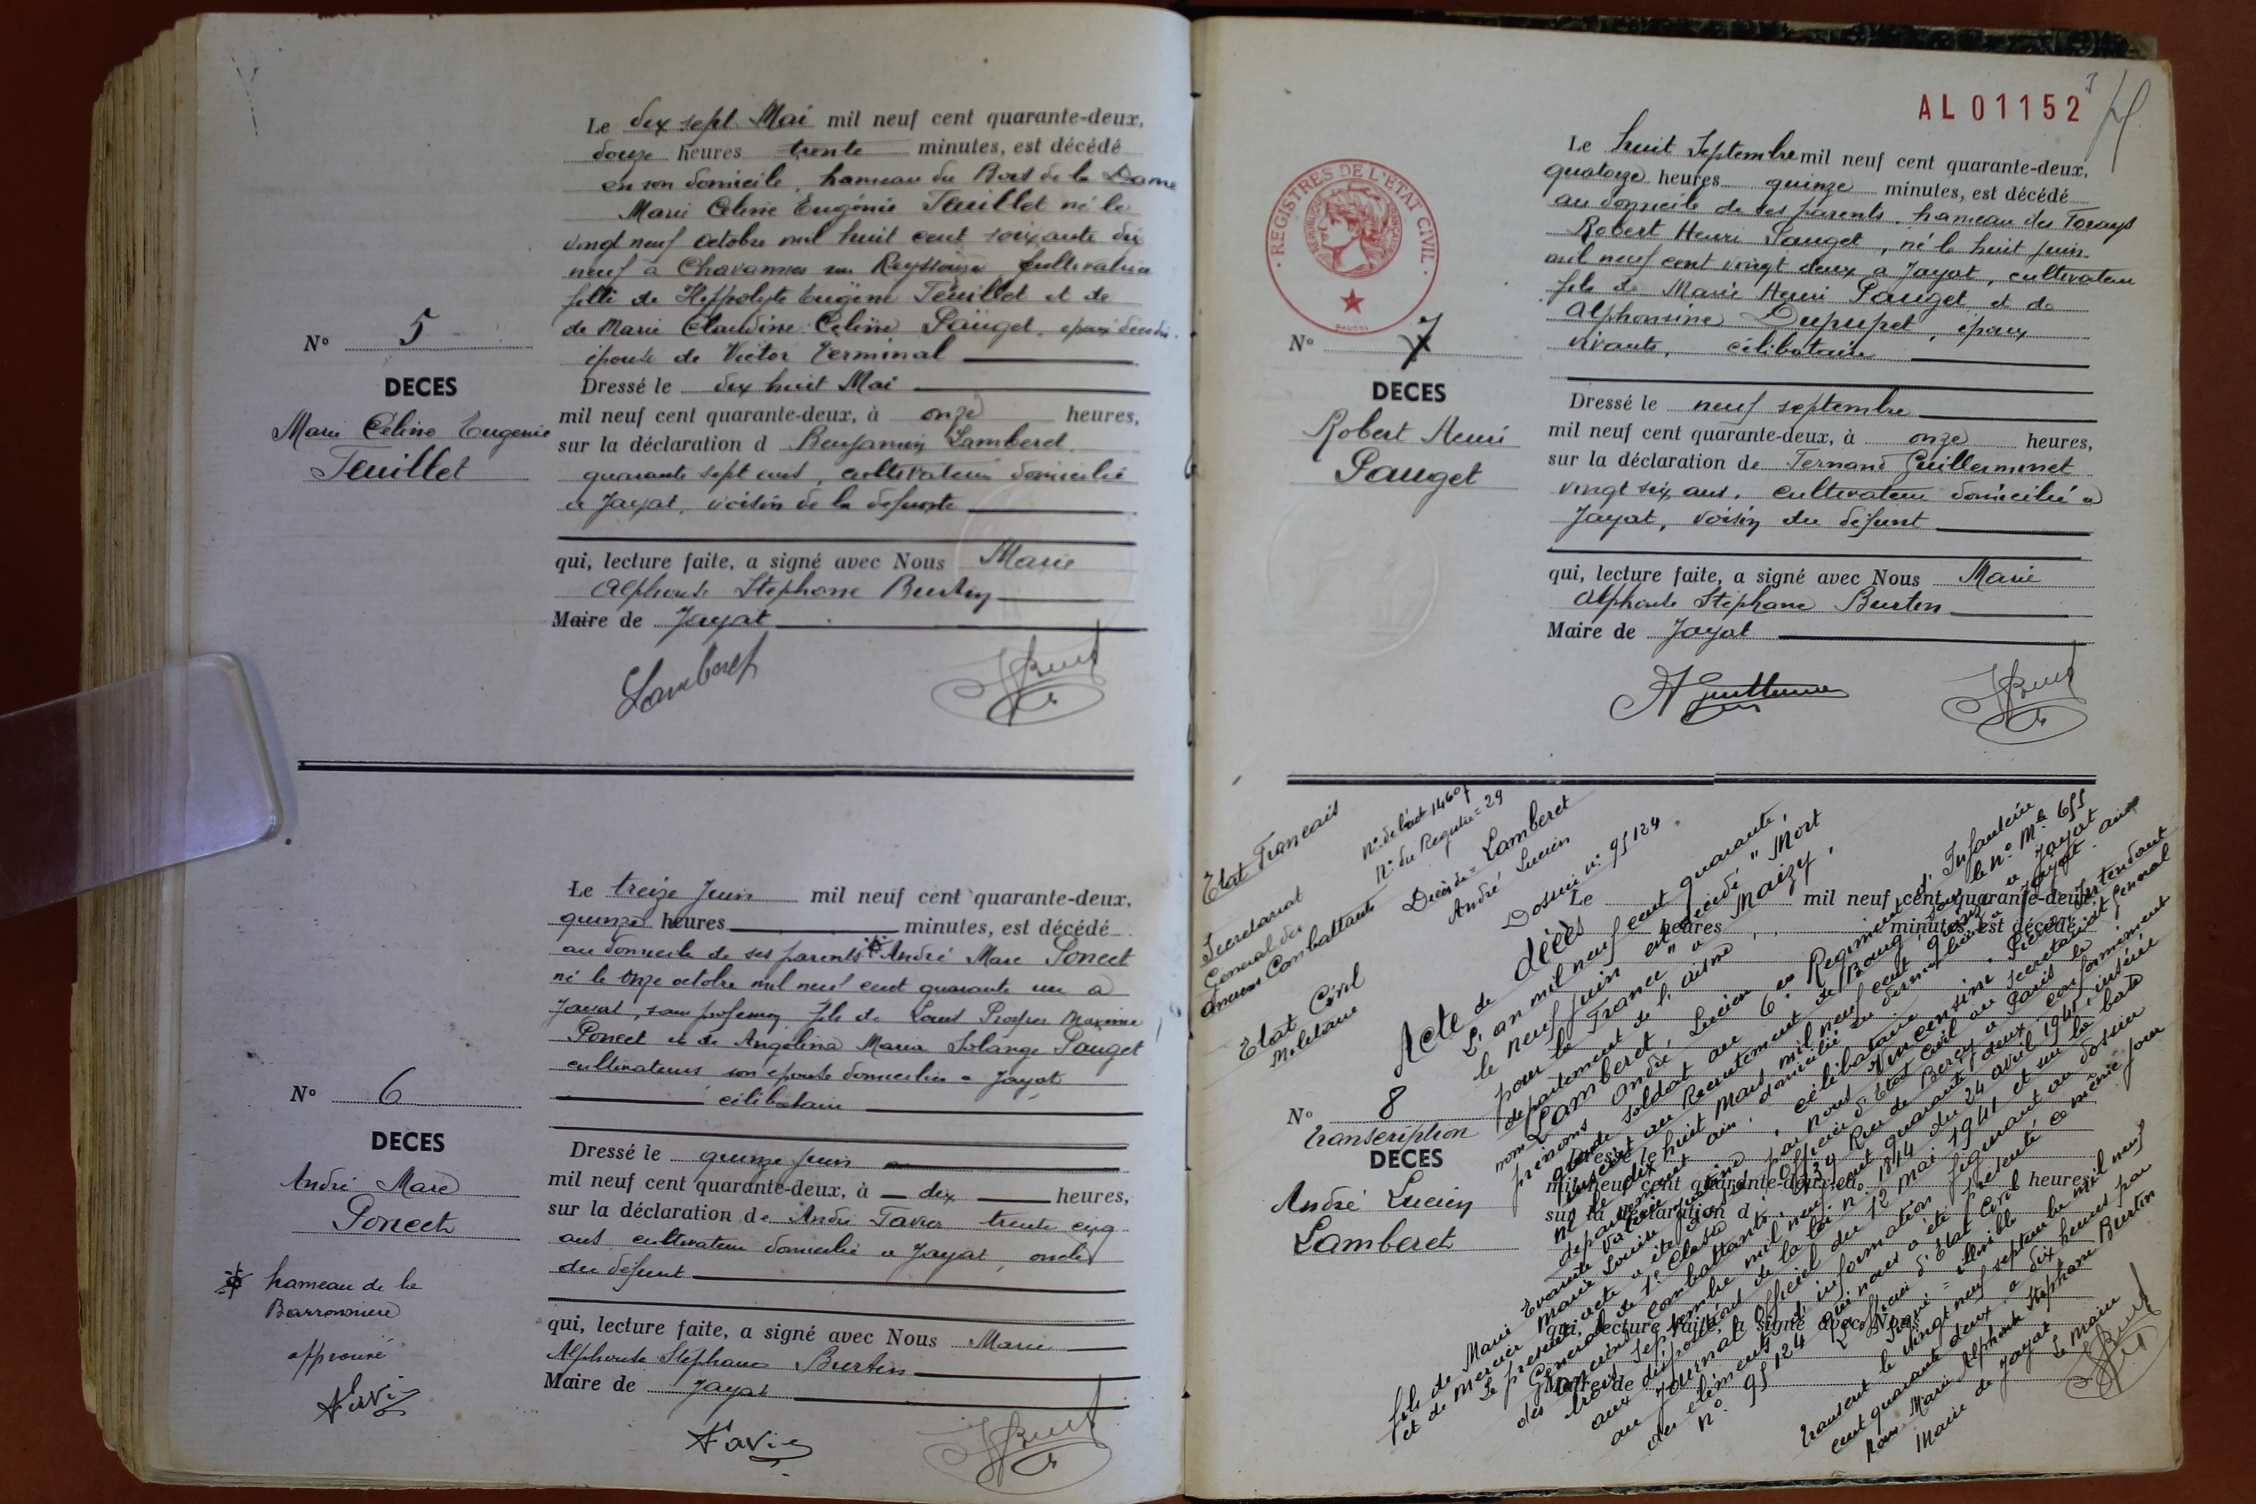 Le dix sept Mai mil neuf cent quarante-deux,
douze heures trente minutes, est décédé
en son domicile, hameau du Bois de la Dame
Marie Céline Eugénie Feuillet né le
vingt neuf octobre mil huit cent soixante dix
neuf à Chavannes sur Reyssouze cultivatrice
fille de Hippolyte Eugène Feuillet et de
de Marie Claudine Céline Pauget, epoux décédés.
épouse de Victor Terminal
N° 5
DECES
Marie Céline Eugenie
Feuillet
Dressé le dix huit Mai
mil neuf cent quarante-deux, à onze heures,
sur la déclaration d Benjamin Lamberet
quarante sept ans, cultivateur domicilié
à Jayat, voisin de la défunte
qui, lecture faite, a signé avec Nous Marie
Alphonse Stéphane Burtin
Maire de Jayat
Lamberet
Le treize Juin mil neuf cent quarante-deux,
quinze heures minutes, est décédé
au domicile de ses parents André Marc Poncet
né le onze octobre mil neuf cent quarante un à
Jayat, sans profession fils de Louis Prosper Maxime
Poncet et de Angélina Maria Solange Pauget
cultivateurs son epouse domiciliés à Jayat
célibataire
N° 6
DECES
André Marc
Poncet
hameau de la
Barronniere
approuvé
Favier
Dressé le quinze juin
mil neuf cent quarante-deux, à dix heures,
sur la déclaration de André Favier trente cinq
ans cultivateur domicilié à Jayat, oncle
du défunt
qui, lecture faite, a signé avec Nous Marie
Alphonse Stéphane Burtin
Maire de Jayat
Favier
AL 01152
REGISTRES DE L'ETAT CIVIL
Le huit Septembre mil neuf cent quarante-deux,
quatorze heures quinze minutes, est décédé
au domicile de ses parents, hameau des
Robert Henri Pauget, né le huit juin
mil neuf cent vingt deux à Jayat, cultivateur
fils de Marie Henri Pauget et de
Alphonsine Dupupet, époux
vivants, célibataire
N° 7
DECES
Robert Henri
Pauget
Dressé le neuf septembre
mil neuf cent quarante-deux, à onze heures,
sur la déclaration de Fernand Guillerminet
vingt six ans, cultivateur domicilié à
Jayat, voisin du défunt
qui, lecture faite, a signé avec Nous Marie
Alphonse Stéphane Burtin
Maire de Jayat
Etat Français
Secretariat
General des
Anciens Combattants
Etat Civil
Militaire
N° du Registre = 29
Décès de = Lamberet
André Lucien
Dossier n° 95124
Le mil neuf cent quarante-deux,
heures minutes, est décédé
N° 8
transcription
DECES
André Lucien
Lamberet
Dressé le
mil neuf cent quarante-deux, à heures,
sur la déclaration d
qui, lecture faite, a signé avec Nous
Maire de
Acte de décès
L'an mil neuf cent quarante,
le neuf juin est décédé "Mort
pour la France" à Maizy,
département de l'Aisne
nom Lamberet,
prénoms André, Lucien
grade soldat au 6e Regiment d'Infanterie
inscrit au Recrutement de Bourg, sous le N° Mle 655
né le dix huit Mars mil neuf cent quinze à Jayat
département Ain, domicilié en dernier lieu à Jayat Ain
célibataire
fils de Marie
et de Mercier Marie Louise
le présent acte a été
Officier d'Etat Civil au Secretariat General
des Anciens Combattants, 139 Rue de Bercy à Paris le
trois septembre mil neuf cent quarante deux, conformément
aux dispositions de la loi n° 1814 du 24 avril 1941, insérée
au Journal Officiel du 12 mai 1941 et sur la base
des éléments d'information figurant au dossier
N° 95124 qui nous a été présenté ce même jour
L'officier d'Etat Civil
Signé = illisible
Transcrit le vingt neuf septembre mil neuf
cent quarante deux à dix heures par
Nous Marie Alphonse Stéphane Burtin
Maire de Jayat
Le Maire